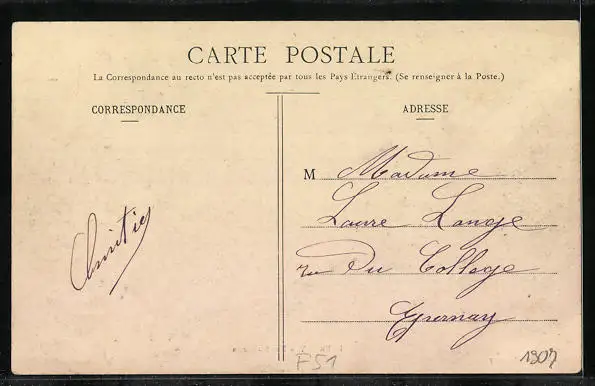 CARTE POSTALE
La Correspondance au recto n'est pas acceptée par tous les Pays Etrangers. (Se renseigner à la Poste.)
CORRESPONDANCE
ADRESSE
M Madame
Laure Lange
rue Du College
Epernay
Amitiés
F51
1907